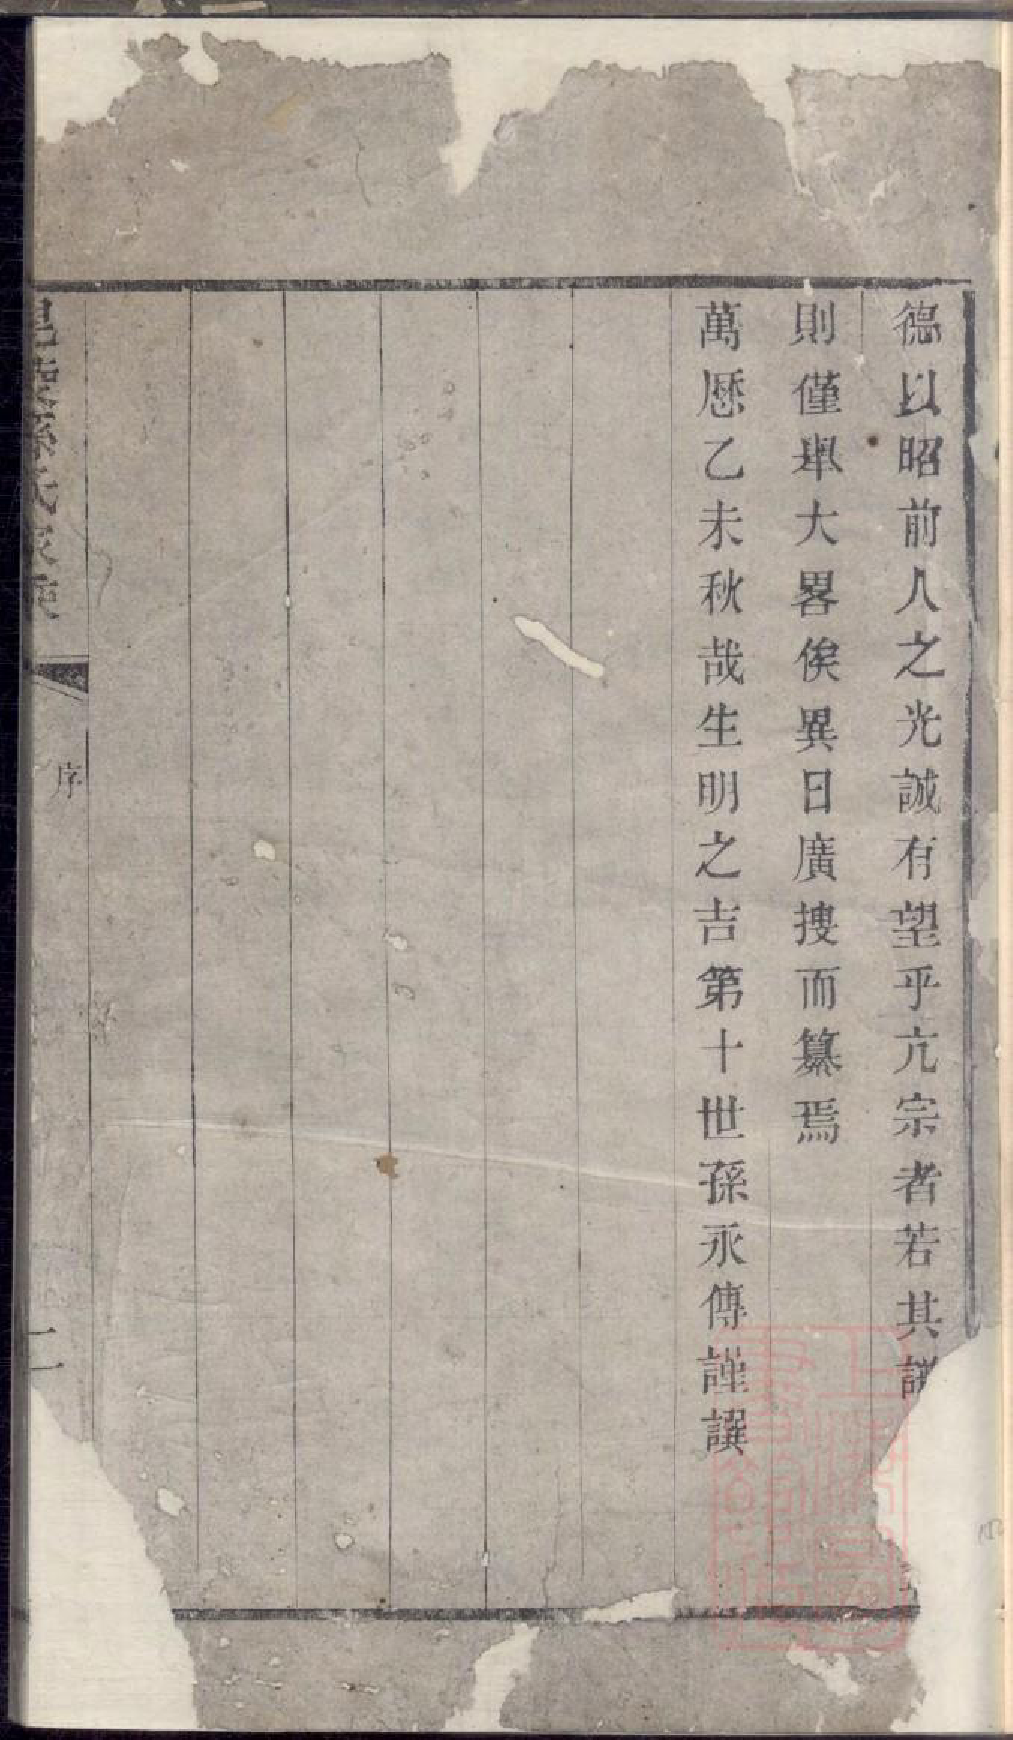 德以昭前人之光誠有望乎亢宗者若其
則僅舉大畧俟異日廣搜而纂焉
萬厯乙未秋哉生明之吉第十世孫永傳謹譔
孫氏家
序
二